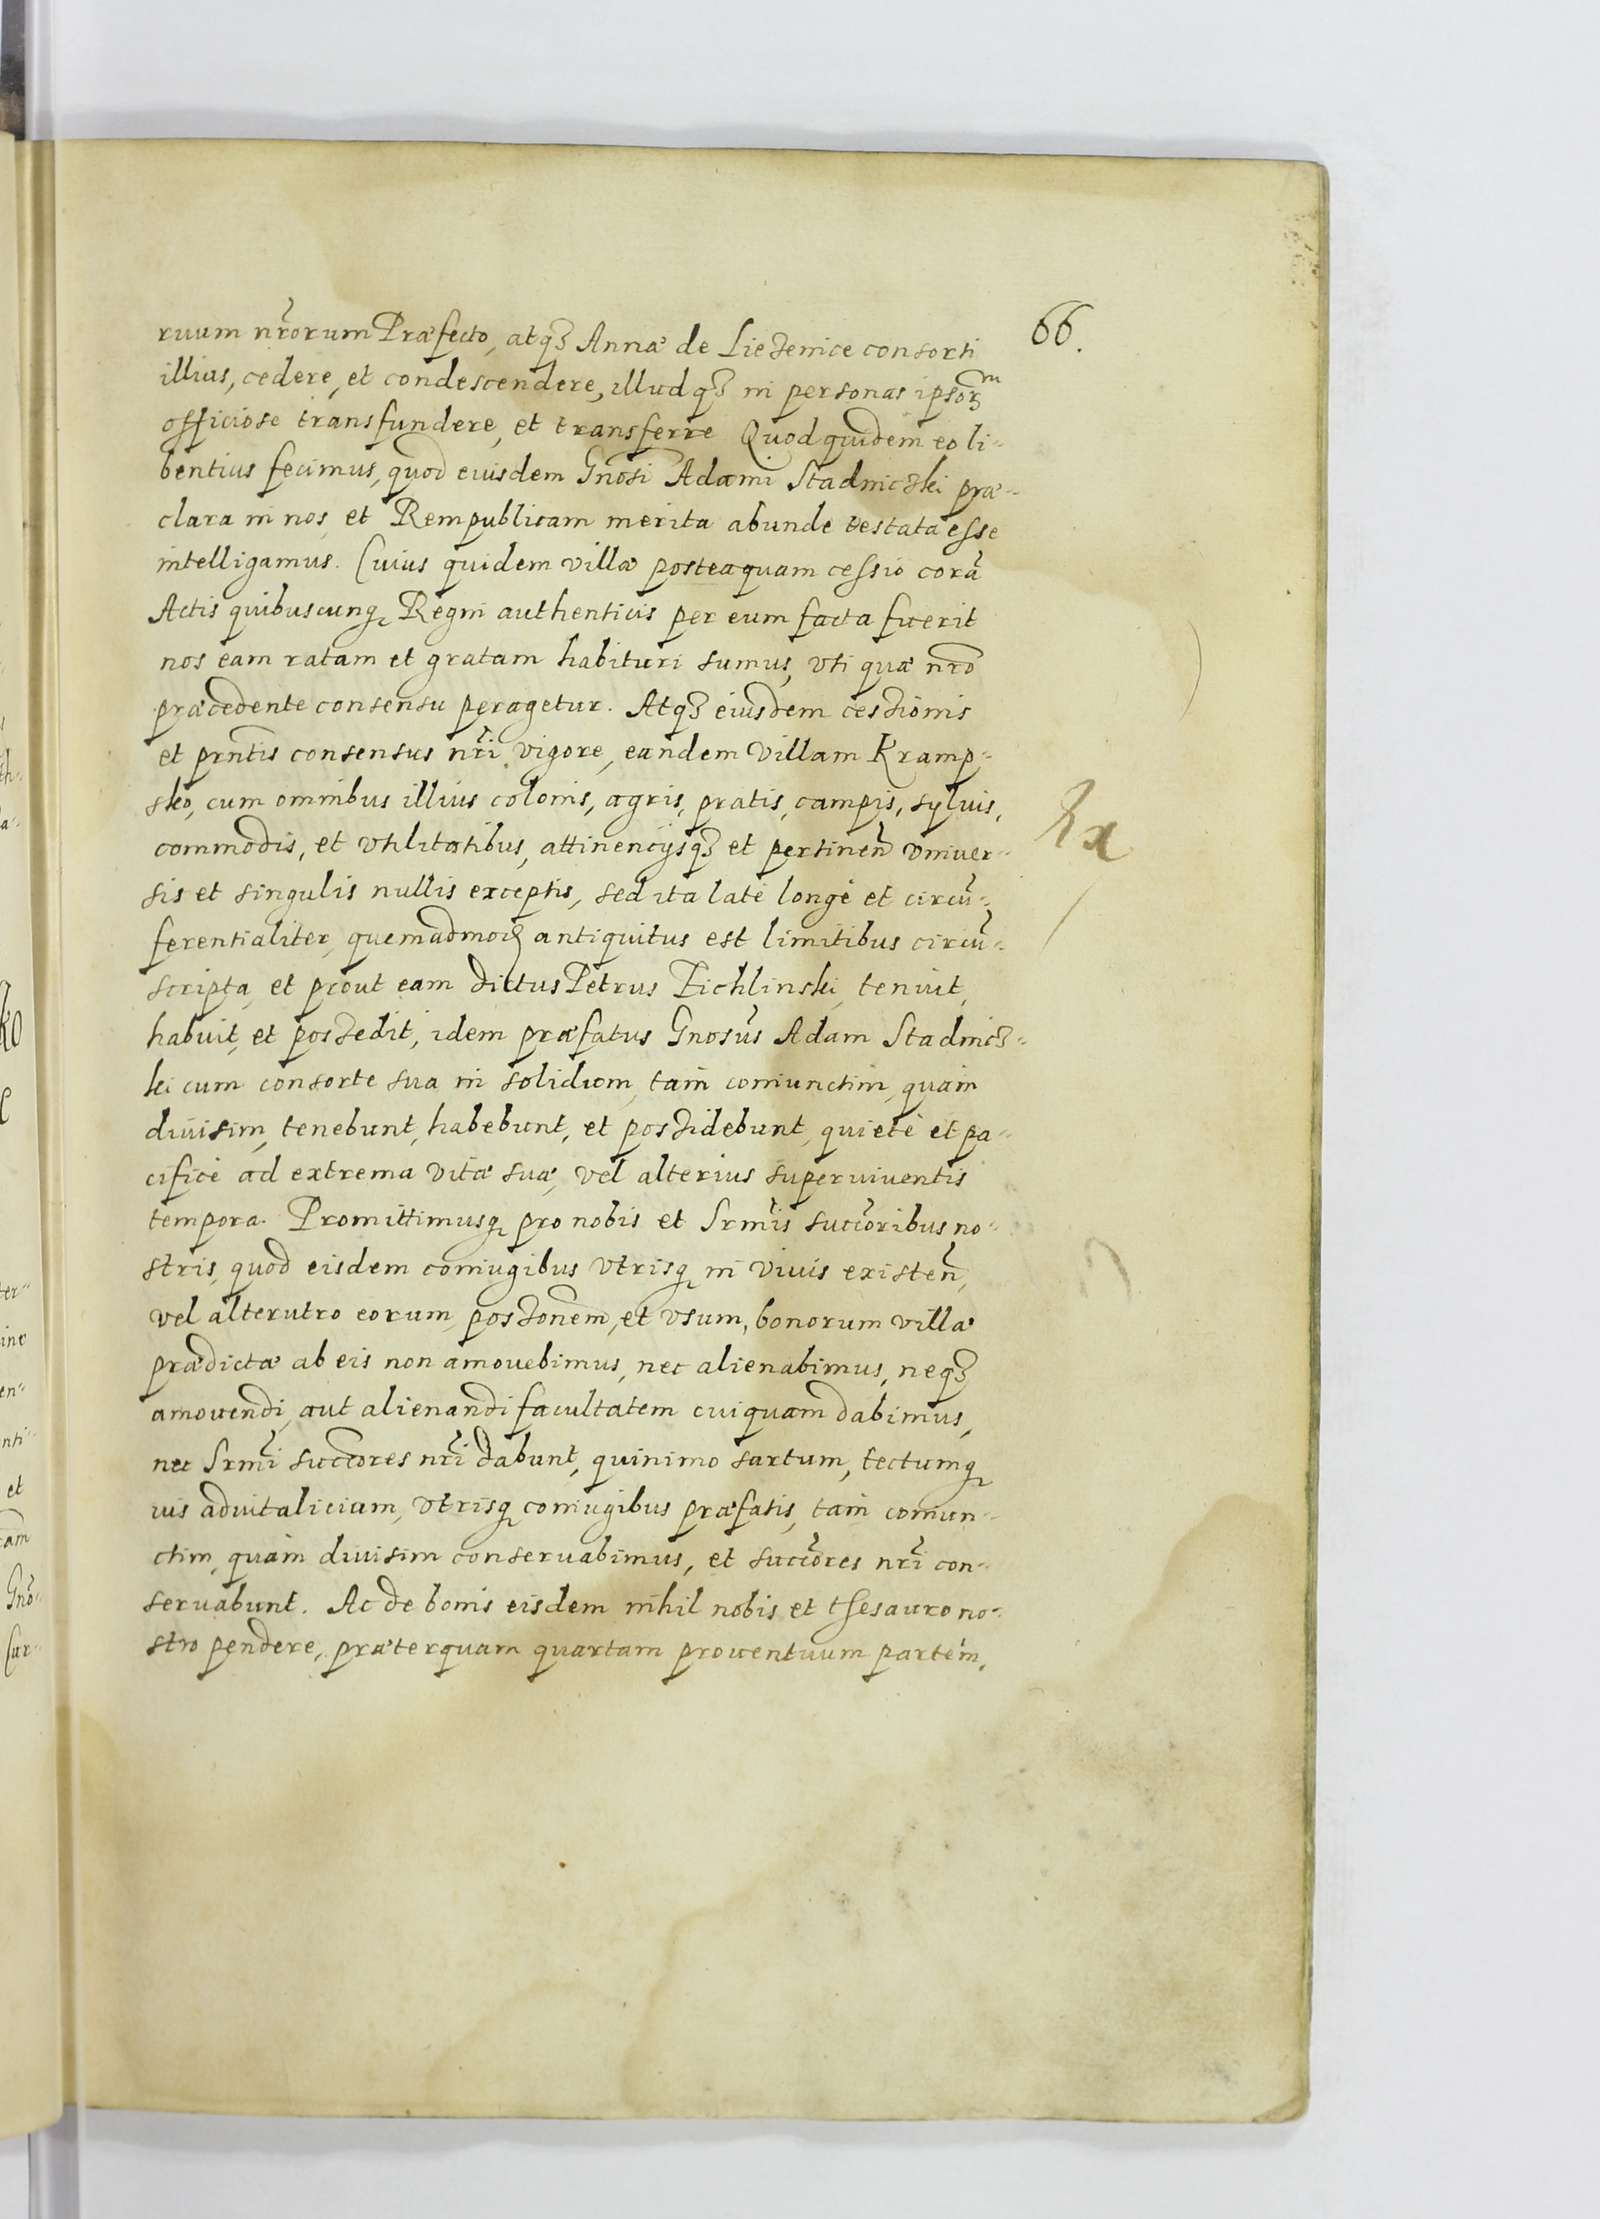 66.
ruum nrõrum Præfecto, atqꝫ Annæ de Lieżenice consorti
illius, cedere, et condescendere, illudqꝫ in personas ipsorm
officiose transfundere, et transferre Quod quidem eo li-
bentius fecimus, quod eiusdem Gnosi Adami Stadnicski præ-
clara in nos, et Rempublicam merita abunde testata esse
intelligamus. Cuius quidem villæ posteaquam cessio corã
Actis quibuscunqꝫ Regni authenticis per eum facta fuerit
nos eam ratam et gratam habituri sumus, vti quæ nrõ
præcedente consensu peragetur. Atqꝫ eiusdem cessionis
et prñtis consensus nrĩ vigore, eandem Villam Kramp-
sko, cum omnibus illius colonis, agris, pratis, campis, syluis,
commodis, et vtilitatibus, attinencijsqꝫ et pertineñ vniuer-
sis et singulis nullis exceptis, sed ita latè longè et circũ-
ferentialiter, quemadmodꝫ antiquitus est limitibus circũ-
scripta, et prout eam dictus Petrus Tichlinski, tenuit,
habuit, et possedit, idem præfatus Gnosus Adam Stadnics-
ki cum consorte sua in solidum, tam coniunctim, quàm
diuisim, tenebunt, habebunt, et possidebunt, quietè et pa-
cificè ad extrema vitæ suæ, vel alterius superuiuentis
tempora. Promittimusqꝫ pro nobis et Srmis succoribus no-
stris, quod eisdem coniugibus vtrisqꝫ in viuis existeñ,
vel alterutro eorum, possonem, et vsum, bonorum villæ
prædictæ ab eis non amouebimus, nec alienabimus, neqꝫ
amouendi, aut alienandi facultatem cuiquam dabimus,
nec Srmi succores nrĩ dabunt, quinimo sartum, tectumqꝫ
ius aduitalicium, vtrisqꝫ coniugibus præfatis, tam coniun-
ctim, quàm diuisim conseruabimus, et succores nrĩ con-
seruabunt. Ac de bonis eisdem nihil nobis et thesauro no-
stro pendere, præterquam quartam prouentuum partem,